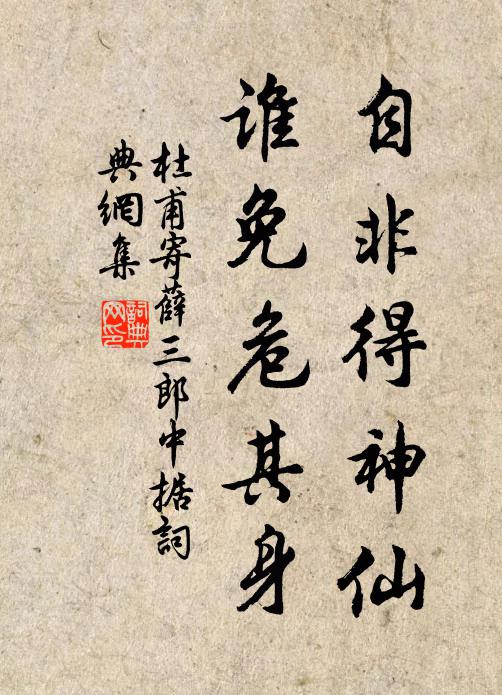 自非得神仙
谁免危其身
杜甫寄薛三郎中据詞
典網集
詞典
网印